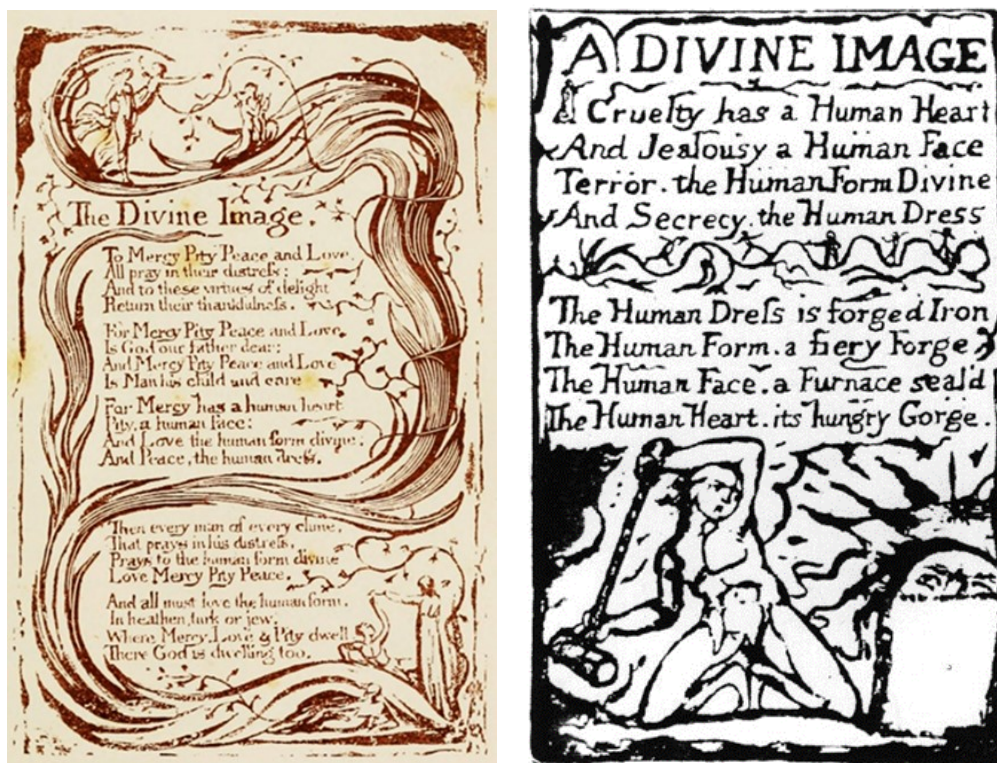 The Divine Image.
To Mercy Pity Peace and Love,
All pray in their distreſs:
And to these virtues of delight
Return their thankfulneſs.
For Mercy Pity Peace and Love,
Is God our father dear:
And Mercy Pity Peace and Love
Is Man his child and care
For Mercy has a human heart
Pity, a human face:
And Love the human form divine;
And Peace, the human dreſs.
Then every man of every clime,
That prays in his distreſs,
Prays to the human form divine
Love Mercy Pity Peace.
And all must love the human form,
In heathen, turk or jew.
Where Mercy, Love & Pity dwell
There God is dwelling too.
A DIVINE IMAGE
Cruelty has a Human Heart
And Jealousy a Human Face
Terror. the Human Form Divine
And Secrecy. the Human Dress
The Human Dreſs is forged Iron
The Human Form. a fiery Forge.
The Human Face. a Furnace seald
The Human Heart. its hungry Gorge.